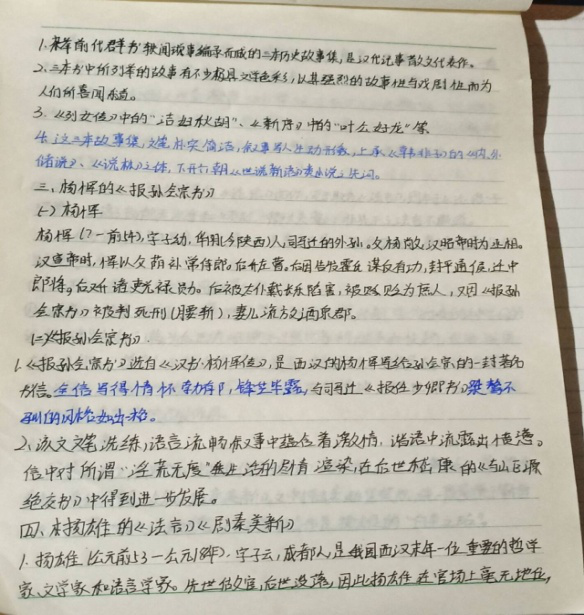 1.采集前代群书轶闻琐事编录而成的三本历史故事集,是汉代记事散文代表作。
2.三本书中所列举的故事有不少极具文学色彩,以其强烈的故事性与戏剧性而为
人们所喜闻乐道。
3.《列女传》中的“洁妇秋胡”、《新序》中的“叶公好龙”等
4.这三本故事集,文笔朴实简洁,叙事写人生动形象,上承《韩非子》的《内、外
储说》、《说林》之体,下开六朝《世说新语》类小说之先河。
三、杨恽的《报孙会宗书》
(一)杨恽
杨恽(?一前54),字子幼,华阴(今陕西)人,司马迁的外孙。父杨敞,汉昭帝时为丞相。
汉宣帝时,恽以父荫补常侍郎。后因告发霍氏谋反有功,封平通侯,迁中
郎将。后被太仆戴长乐陷害,被贬为庶人,又因《报孙
会宗书》被判死刑(腰斩),妻儿流放酒泉郡。
(二)《报孙会宗书》
1.《报孙会宗书》选自《汉书·杨恽传》,是西汉的杨恽写给孙会宗的一封著名
书信。全信写得情怀勃郁,锋芒毕露,与司马迁《报任少卿书》桀骜不
驯的风格如出一格。
2、该文文笔洗练,语言流畅,叙事中蕴含着激情,谐语中流露出愤懑。
信中对所谓“淫荒无度”生活的尽情渲染,在后世嵇康的《与山巨源
绝交书》中得到进一步发展。
四、扬雄的《法言》《剧秦美新》
1.扬雄(公元前53一公元18年),字子云,成都人,是我国西汉末年一位重要的哲学
家、文学家和语言学家。先世做官,后世没落,因此扬雄在官场上毫无地位,